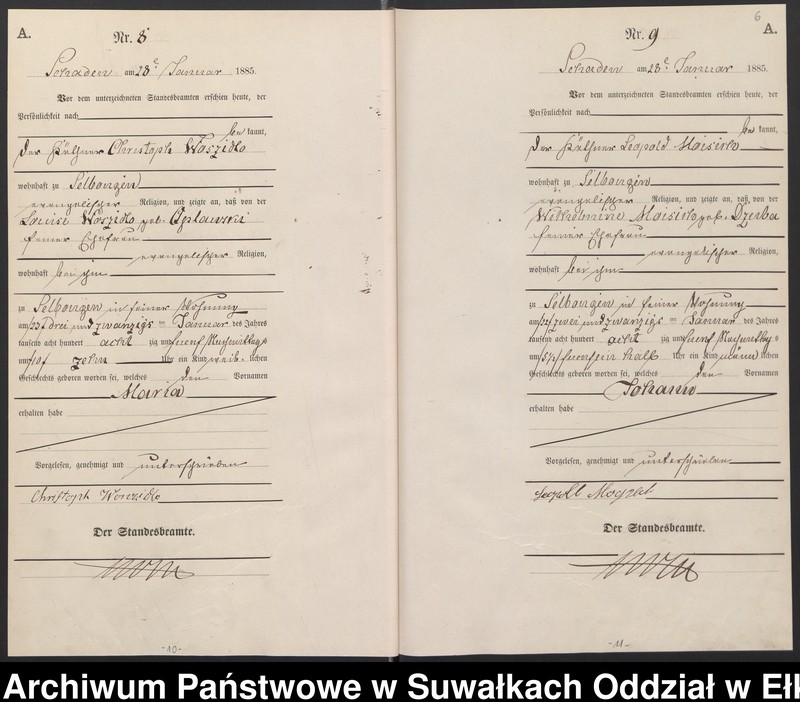 A.
Nr. 8
Schaden am 28 Januar 1885.
Vor dem unterzeichneten Standesbeamten erschien heute, der
Persönlichkeit nach
be kannt,
der Käthner Christoph Woszidlo
wohnhaft zu Selbongen
evangelischer Religion, und zeigte an, daß von der
Louise Woszidlo geb.
seiner Ehefrau
evangelischer Religion,
wohnhaft bei ihm
zu Selbongen in seiner Wohnung
am /23/ drei und zwanzigs ten Januar des Jahres
tausend acht hundert acht zig und fuenf Nachmittags
um /10/ zehn Uhr ein Kind weib- lichen
Geschlechts geboren worden sei, welches den Vornamen
Maria
erhalten habe
Vorgelesen, genehmigt und unterschrieben
Christoph
Der Standesbeamte.
-10-
6
A.
Nr. 9
Schaden am 28 Januar 1885.
Vor dem unterzeichneten Standesbeamten erschien heute, der
Persönlichkeit nach
be kannt,
der Käthner Leopold
wohnhaft zu Selbongen
evangelischer Religion, und zeigte an, daß von der
Wilhelmine geb. Dzerba
seiner Ehefrau
evangelischer Religion,
wohnhaft bei ihm
zu Selbongen in seiner Wohnung
am /22/ zwei und zwanzigs ten Januar des Jahres
tausend acht hundert acht zig und fuenf Nachmittags
um fuenfeinhalb Uhr ein Kind männ lichen
Geschlechts geboren worden sei, welches den Vornamen
Johann
erhalten habe
Vorgelesen, genehmigt und unterschrieben
Leopold
Der Standesbeamte.
-11-
Archiwum Państwowe w Suwałkach Oddział w Ełk